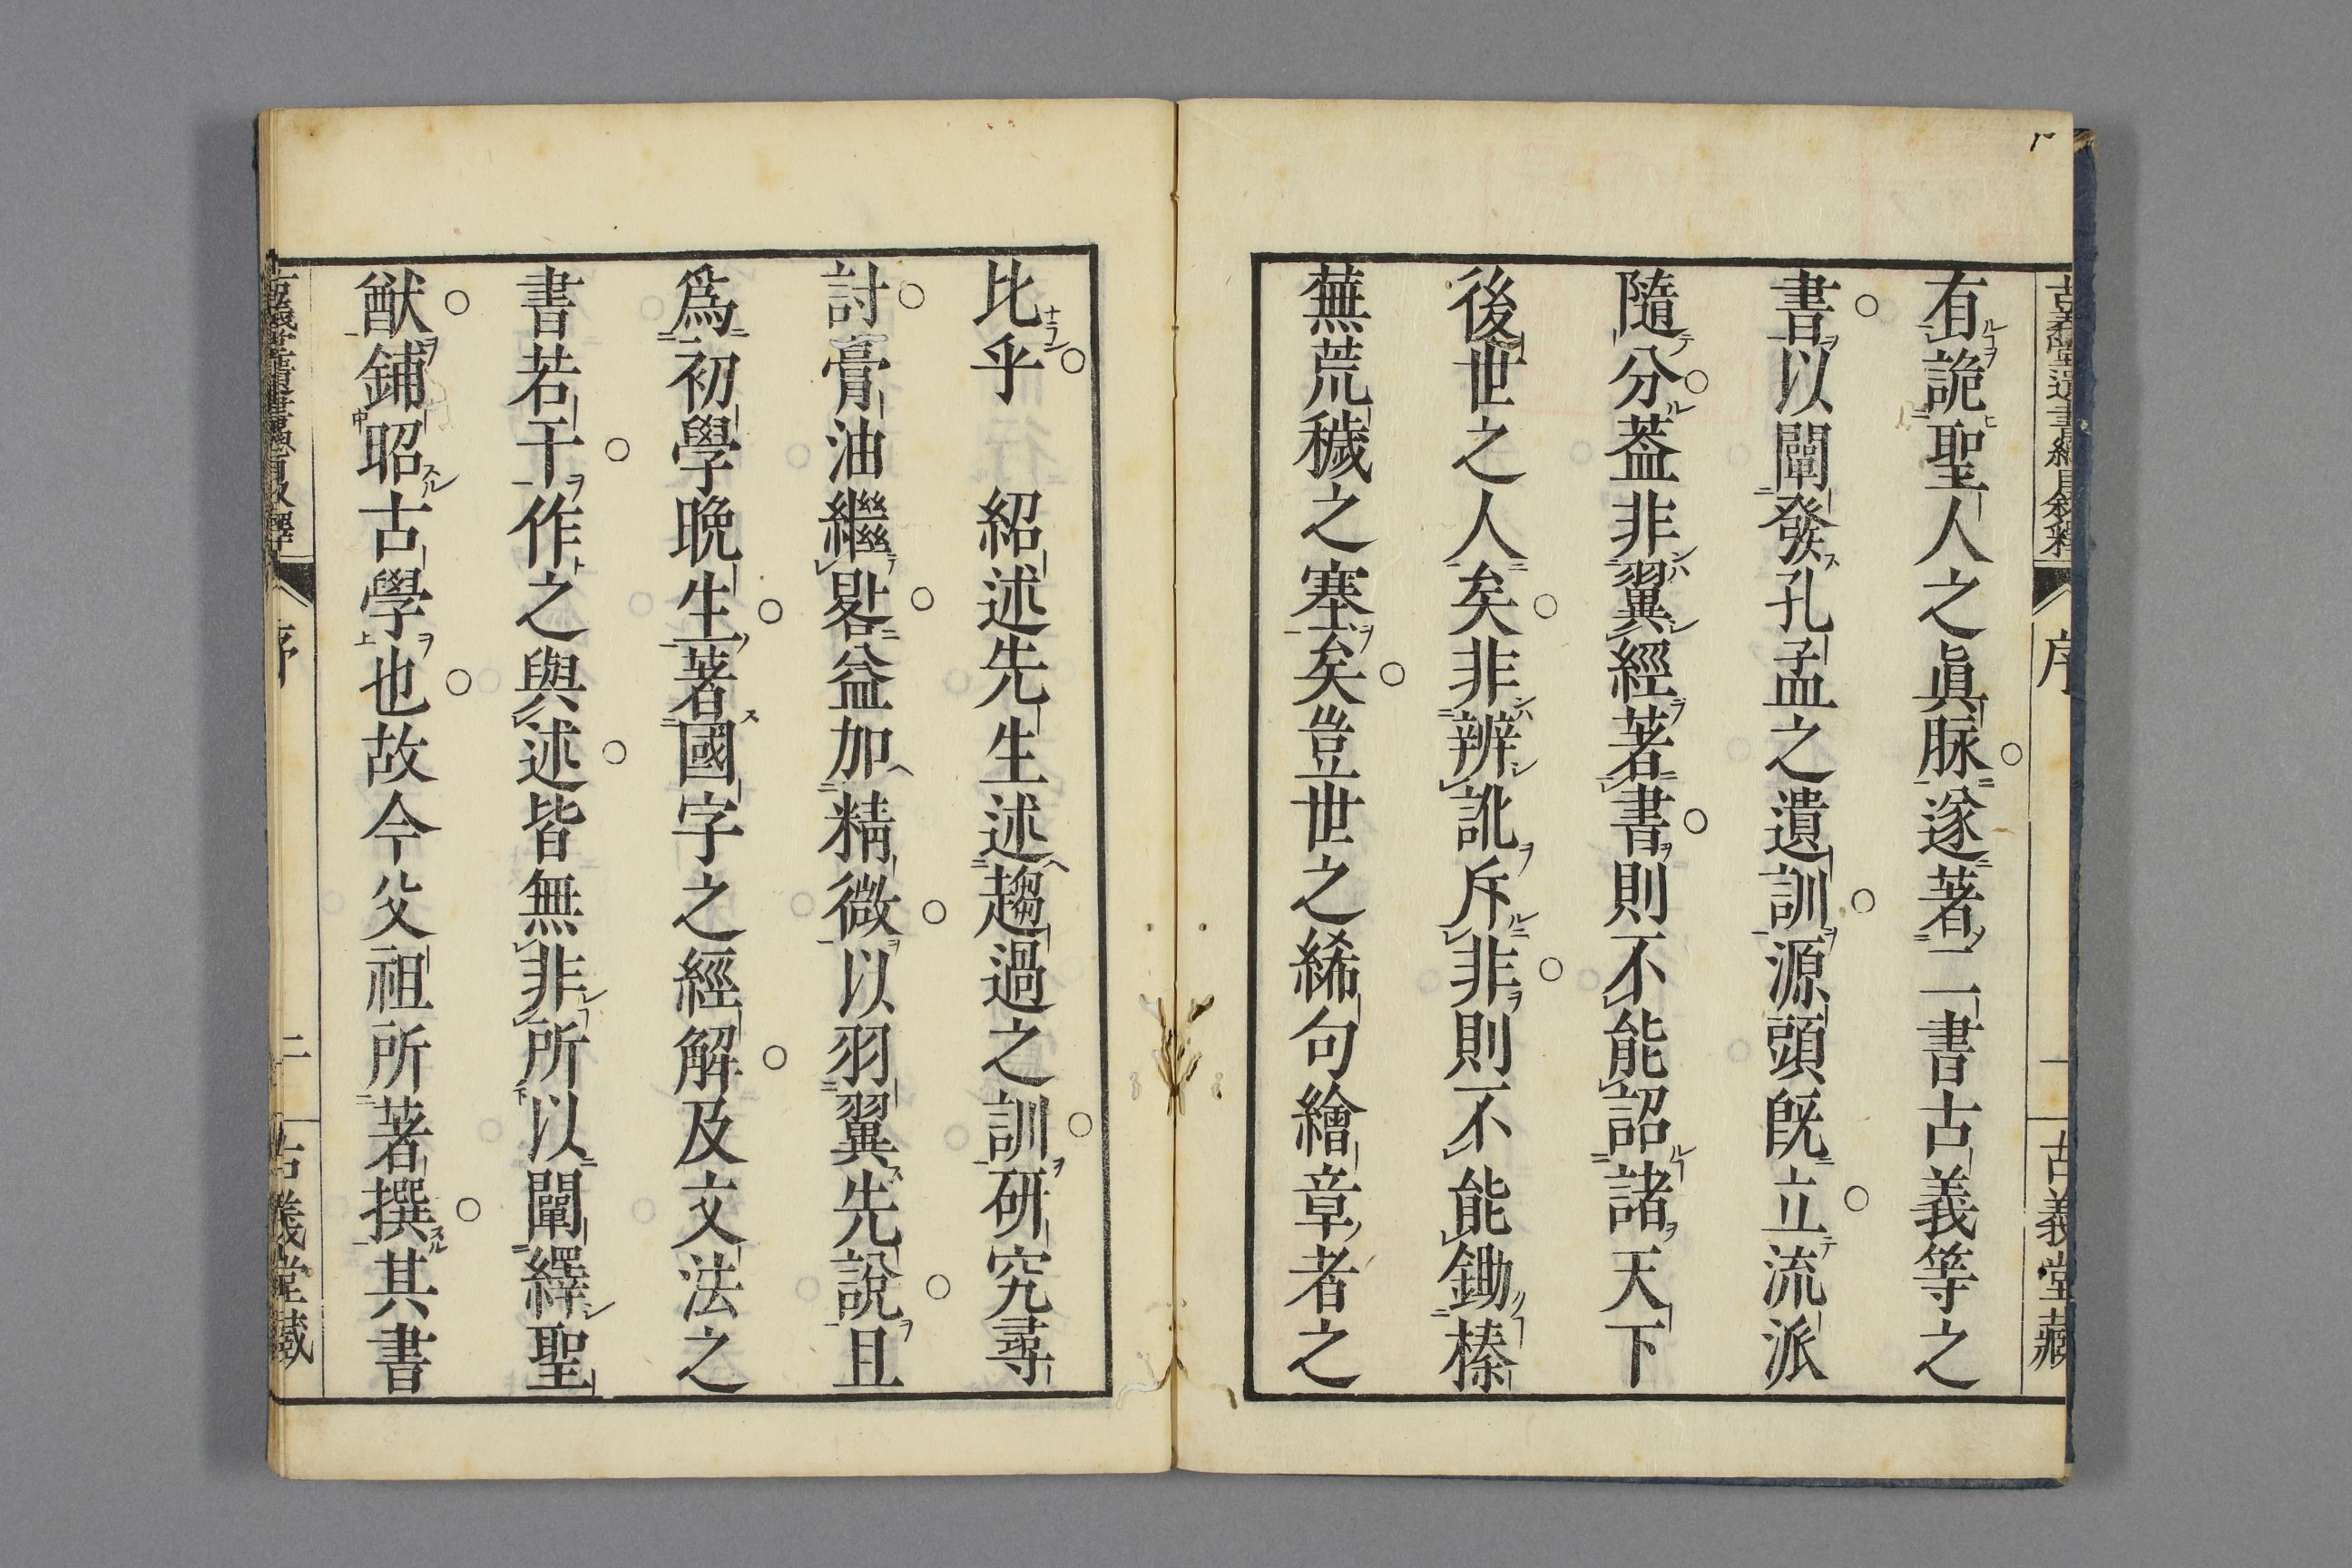 古義堂遺書總目叙釋 序 一 古義堂藏
有詭聖人之眞脉遂著二書古義等之
書以闡發孔孟之遺訓源頭既立流派
隨分葢非翼經著書則不能詔諸天下
後世之人矣非辨訛斥非則不能鋤榛
蕪荒穢之塞矣豈世之絺句繪章者之
比乎 紹述先生述趨過之訓研究尋
討膏油繼晷益加精微以羽翼先説且
爲初學晩生著國字之經解及文法之
書若干作之與述皆無非所以闡繹聖
猷鋪昭古學也故今父祖所著撰其書
古義堂遺書總目叙釋 序 二 古義堂藏